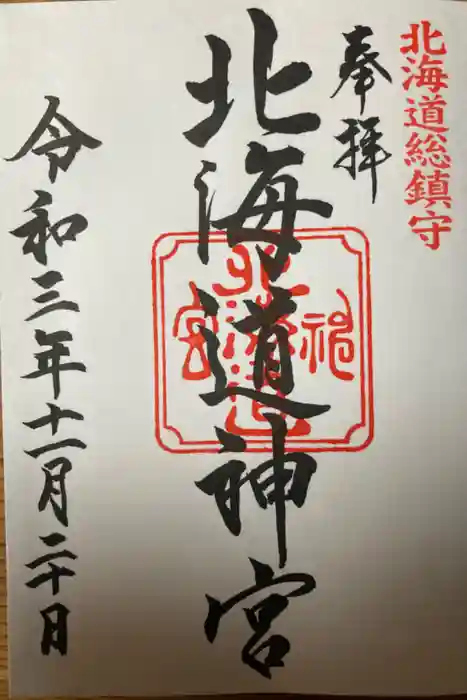 北海道総鎮守
奉拝
北海道神宮
北海道神宮
令和三年十一月二十日